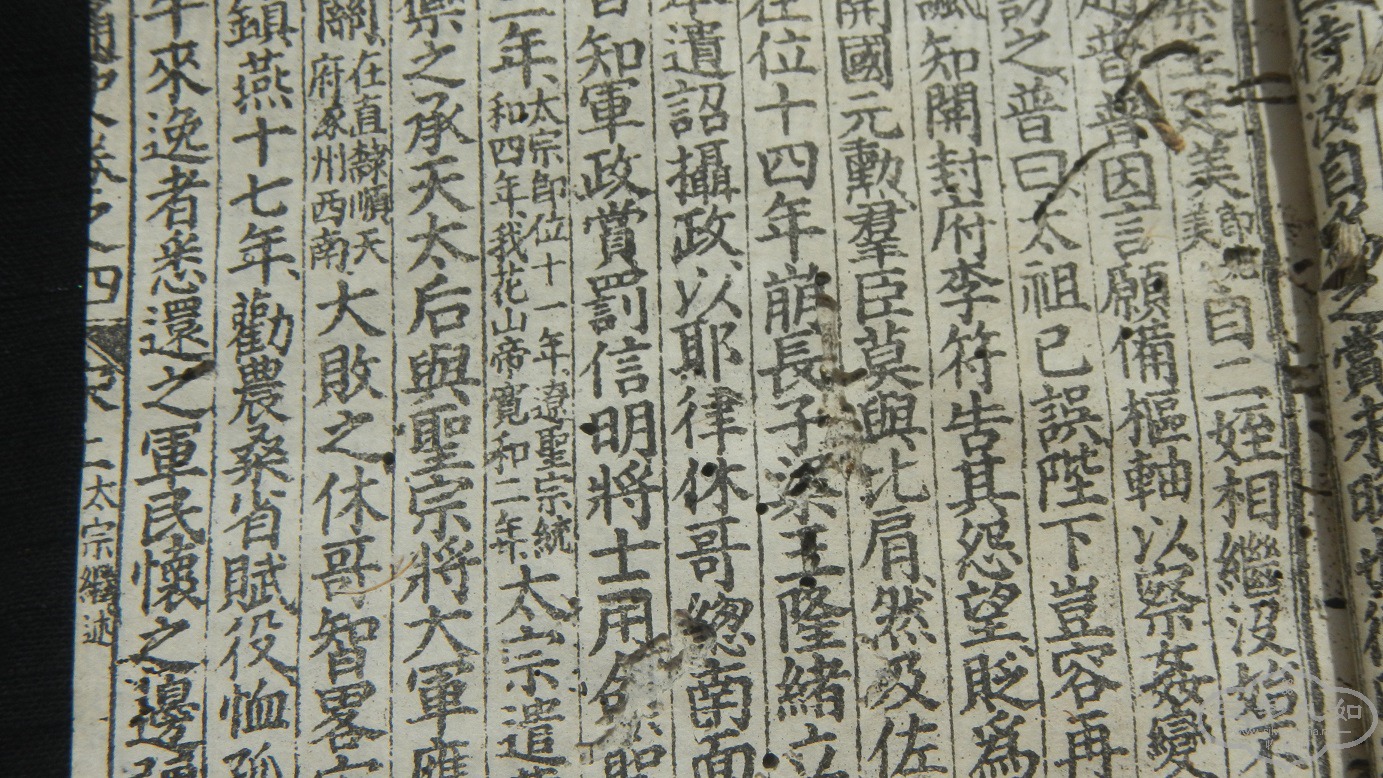 待汝自
之賞未
王廷美
美
自二姪相繼沒始
普因言願備樞軸以察姦變
訪之普曰太祖已誤陛下豈容再
諷知開封府李符告其怨望貶爲
開國元勳羣臣莫與比肩然及佐
在位十四年崩長子梁王隆緒立
遺詔攝政以耶律休哥總南面
知軍政賞罰信明將士用命
二年太宗卽位十一年遼聖宗統
和四年我花山帝寬和二年太宗遣
之承天太后與聖宗將大軍應
關在直隸順天
府涿州西南大敗之休哥智畧宏
鎮燕十七年勸農桑省賦役恤孤
年來逸者悉還之軍民懷之邊
卷之四 二太宗繼述